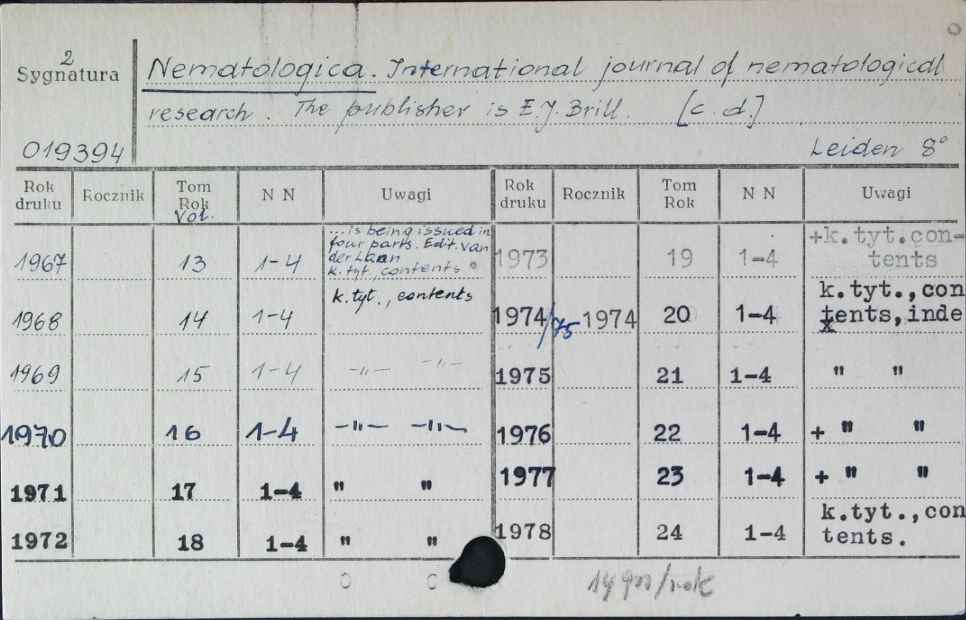 2
Sygnatura
Nematologica. International journal of nematological
research. The publisher is E.J. Brill. [c. d.]
019394
Leiden 8°
Rok druku Rocznik Tom Rok Vol. N N Uwagi Rok druku Rocznik Tom Rok N N Uwagi
1967 13 1-4 ...is being issued in
four parts. Edit. van
der Laan
k.tyt., contents
1973 19 1-4 +k.tyt.con-
tents
1968 14 1-4 k.tyt., contents
1974/75 1974 20 1-4 k.tyt.,con
tents,inde
x
1969 15 1-4 -"- -"-
1975 21 1-4 " "
1970 16 1-4 -"- -"-
1976 22 1-4 + " "
1971 17 1-4 " "
1977 23 1-4 + " "
1972 18 1-4 " "
1978 24 1-4 k.tyt.,con
tents.